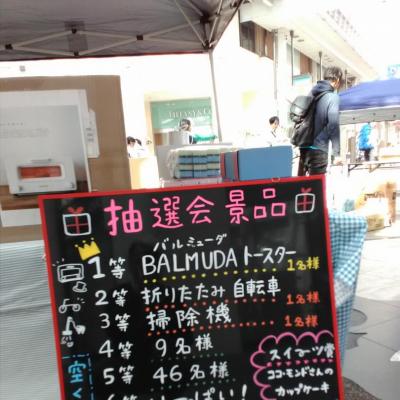 TIFFANY & CO.
抽選会景品
バルミューダ
1等 BALMUDA トースター 1名様
2等 折りたたみ自転車 1名様
3等 掃除機 1名様
4等 9名様
5等 46名様
スイーツ賞
ココ・モンドさんの
カップケーキ
空く